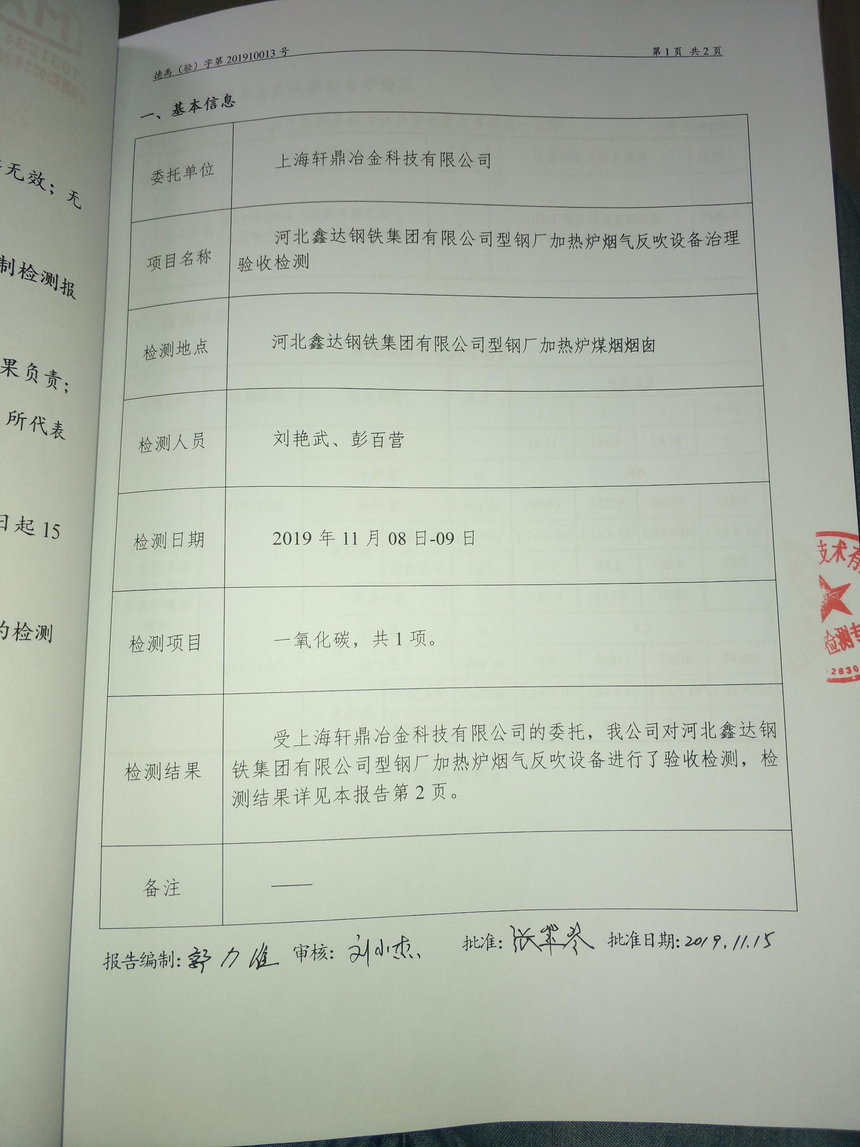 德禹（验）字第 201910013 号
第 1 页 共 2 页
一、基本信息
委托单位
上海轩鼎冶金科技有限公司
项目名称
河北鑫达钢铁集团有限公司型钢厂加热炉烟气反吹设备治理
验收检测
检测地点
河北鑫达钢铁集团有限公司型钢厂加热炉煤烟烟囱
检测人员
刘艳武、彭百营
检测日期
2019 年 11 月 08 日-09 日
检测项目
一氧化碳，共 1 项。
检测结果
受上海轩鼎冶金科技有限公司的委托，我公司对河北鑫达钢
铁集团有限公司型钢厂加热炉烟气反吹设备进行了验收检测，检
测结果详见本报告第 2 页。
备注
——
报告编制: 审核: 刘小杰 批准: 张 批准日期: 2019.11.15
无效；无
制检测报
果负责；
所代表
日起 15
的检测
技术有
检测专
2830